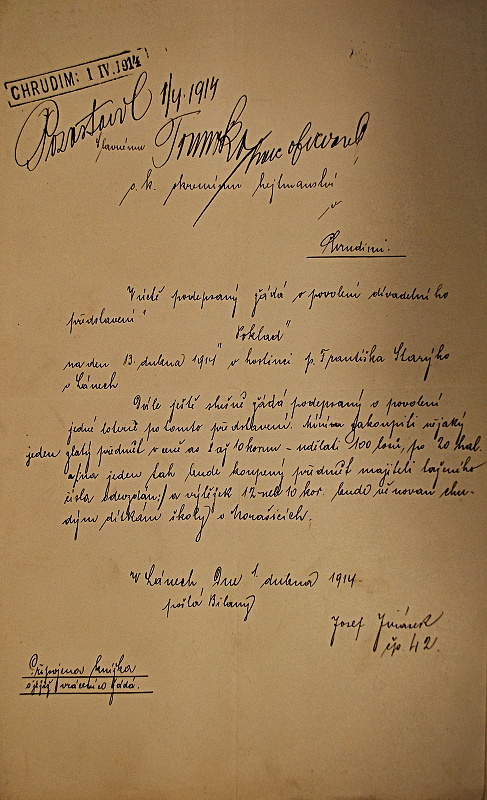 CHRUDIM: 1 IV. 1914
1/4. 1914
Slavnému
c. k. okresnímu hejtmanství
v
Chrudimi.
V úctě podepsaný žádá o povolení divadelního
představení
"Poklad"
na den 13. dubna 1914 v hostinci p. Františka Starýho
v Lánech
Dále ještě slušně žádá podepsaný o povolení
jedné loterii po tomto představení. Míníme zakoupiti nějaký
jeden zlatý předmět v ceně as 8 až 10 korun – udělati 100 losů, po 20 hal.
a na jeden tah bude koupený předmět majiteli taženého
čísla odevzdán; a výtěžek 12 neb 10 kor. bude věnován chu-
dým dítkám školy v Morašicích.
V Lánech Dne 1. dubna 1914.
pošta Bílany
Josef
čp. 42.
Připojena knížka
o jejíž vrácení se žádá.